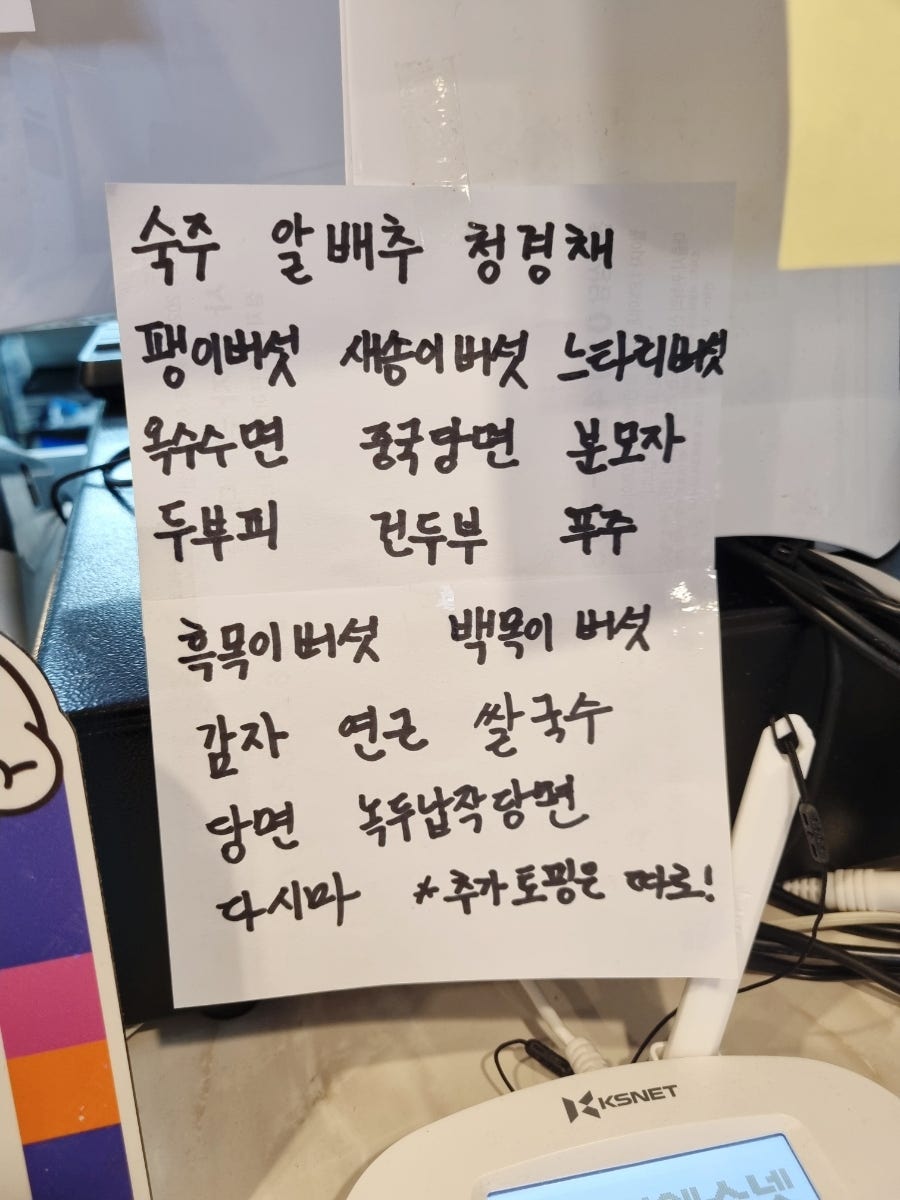 숙주 알배추 청경채
팽이버섯 새송이버섯 느타리버섯
옥수수면 중국당면 분모자
두부피 건두부 푸주
흑목이버섯 백목이 버섯
감자 연근 쌀국수
당면 녹두납작당면
다시마 *추가토핑은 따로!
KSNET